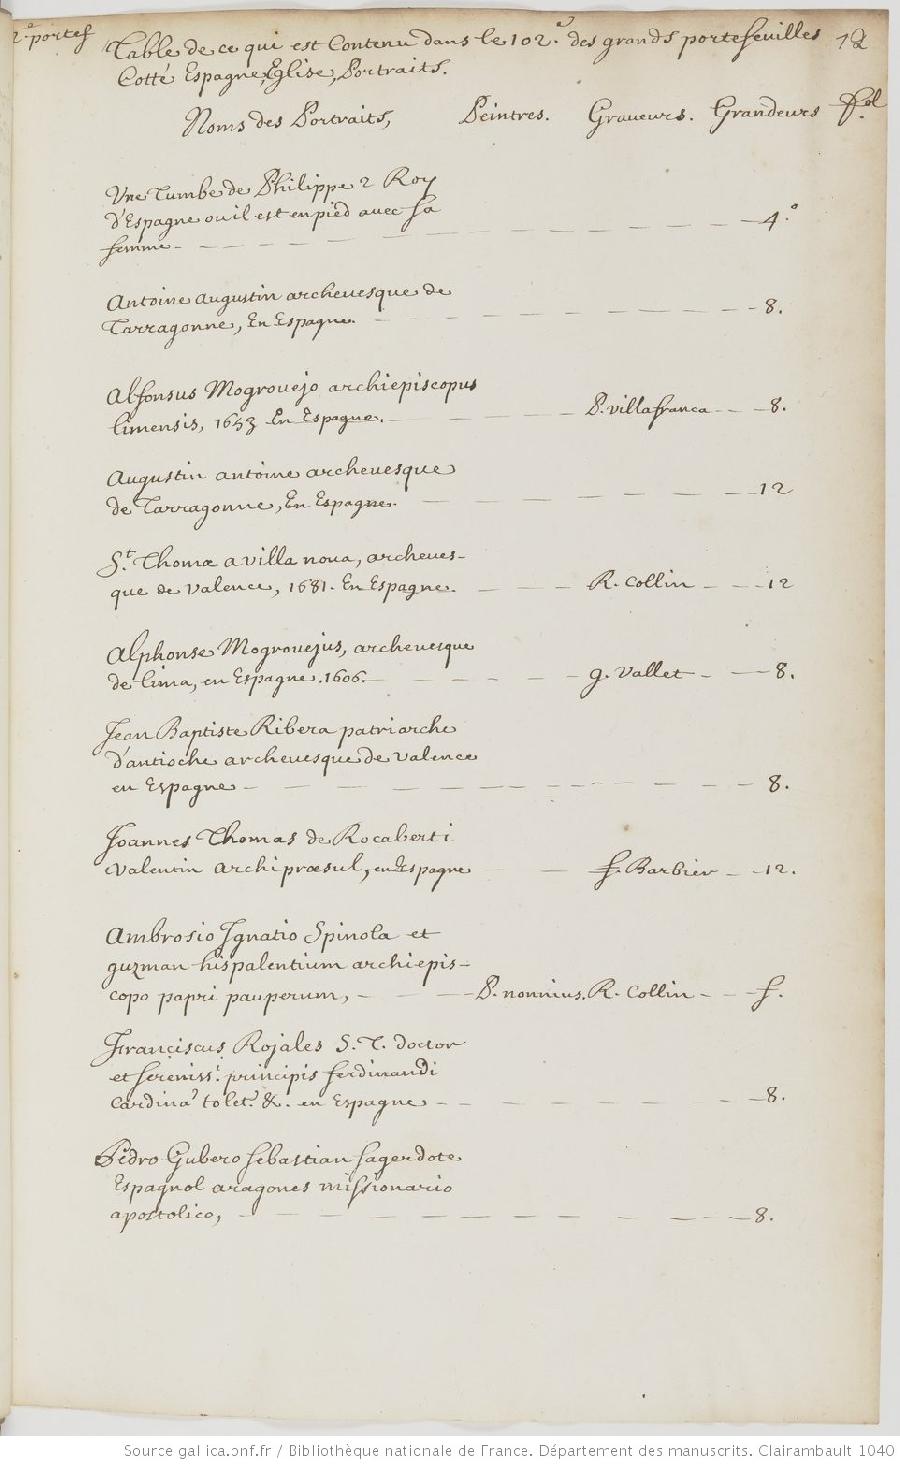 2.e portef
Table de ce qui est Contenu dans le 102.e des grands portefeuilles 12
Cotté Espagne, Eglise, Portraits.
Noms des Portraits, Peintres. Graueurs. Grandeurs fol.
Vne Tumbe de Philippe 2 Roy
d'Espagne ou il est en pied avec sa
femme - 4.o
Antoine Augustin archeuesque de
Tarragonne, En Espagne. - 8.
Alfonsus Mogrouejo archiepiscopus
limensis, 1653 En Espagne. - P. villafranca - 8.
Augustin antoine archeuesque
de Tarragonne, En Espagne. - 12
S.t Thomæ a villa noua, archeues-
que de Valence, 1681. En Espagne. - R. Collin - 12
Alphonse Mogrouejus, archeuesque
de lima, en Espagne. 1606. - g. Vallet - 8.
Jean Baptiste Ribera patriarche
d'antioche archeuesque de valence
en Espagne - 8.
Joannes Thomas de Rocaberti
Valentin archipræsul, en Espagne - f. Barbier - 12.
Ambrosio Ignatio Spinola et
guzman hispalentium archiepis-
copo papri pauperum, - P. nonnius. R. Collin - f.
Franciscus Rojales S. T. doctor
et sereniss.i principis ferdinandi
Cardina.' tolet.' &. en Espagne - 8.
Pedro Gubero sebastian sagerdote
Espagnol aragones missionario
apostolico, - 8.
Source gallica.bnf.fr / Bibliothèque nationale de France. Département des manuscrits. Clairambault 1040